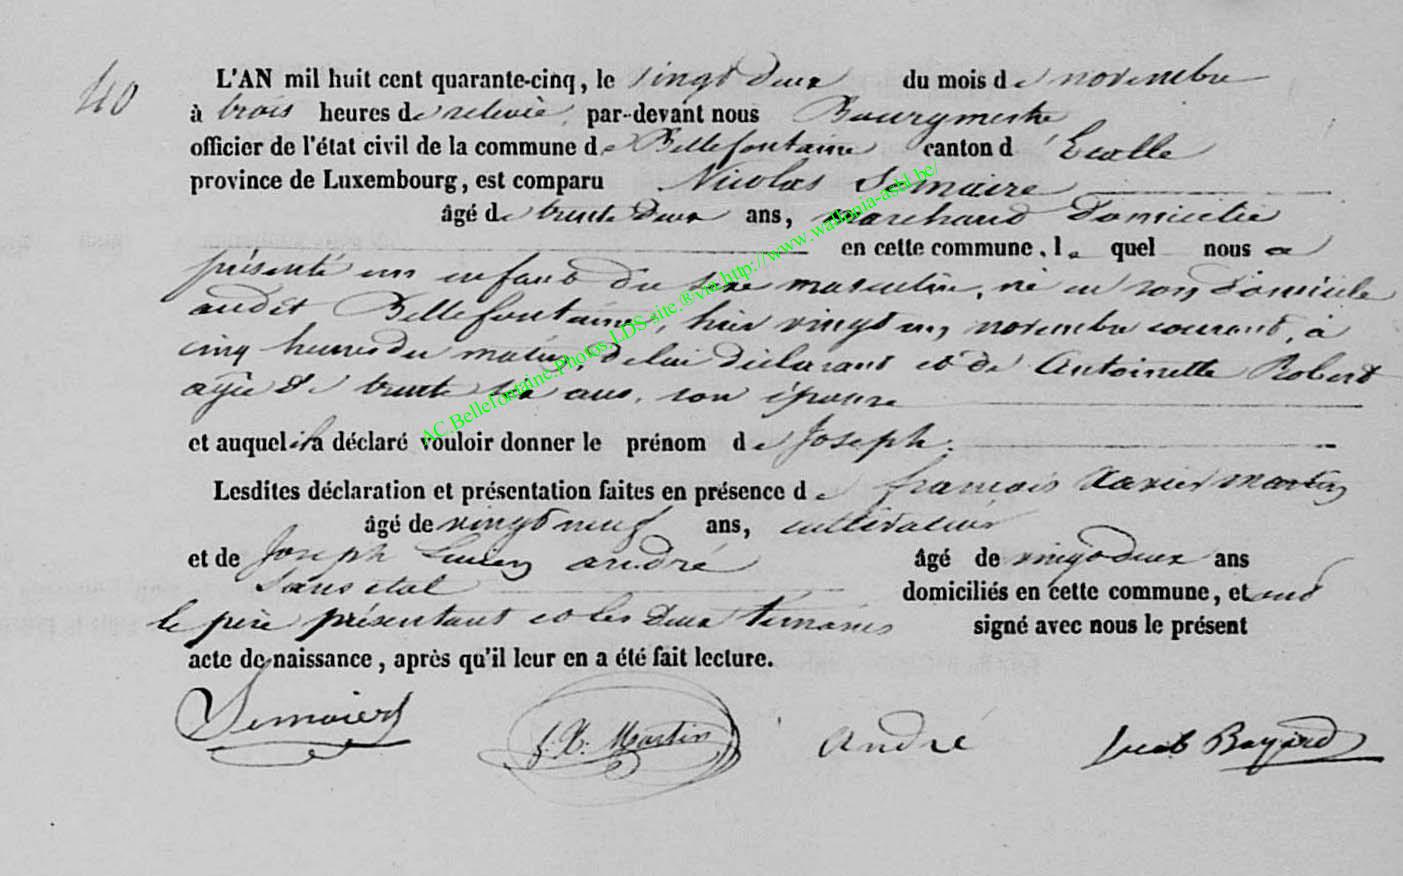 40
L'AN mil huit cent quarante-cinq, le vingt deux du mois de novembre
à trois heures de relevée, par-devant nous Bourgmestre
officier de l'état civil de la commune de Bellefontaine canton d'Etalle
province de Luxembourg, est comparu Nicolas Semaire
âgé de trente deux ans, marchand domicilié
en cette commune, lequel nous a
présenté un enfant du sexe masculin, né en son domicile
audit Bellefontaine, hier vingt un novembre courant, à
cinq heures du matin, de lui déclarant et de Antoinette Robert
agée de trente six ans, son épouse
et auquel il a déclaré vouloir donner le prénom de Joseph.
Lesdites déclaration et présentation faites en présence de françois Xavier Martin
âgé de vingt neuf ans, cultivateur
et de Joseph Lucien andré âgé de vingt deux ans
sans etat domiciliés en cette commune, et ont
le père présentant et les deux témoins signé avec nous le présent
acte de naissance, après qu'il leur en a été fait lecture.
f. X. Martin André Jacob Bayard
AC.Bellefontaine.Photos.LDS.site.®via.http://www.wallonia-asbl.be/